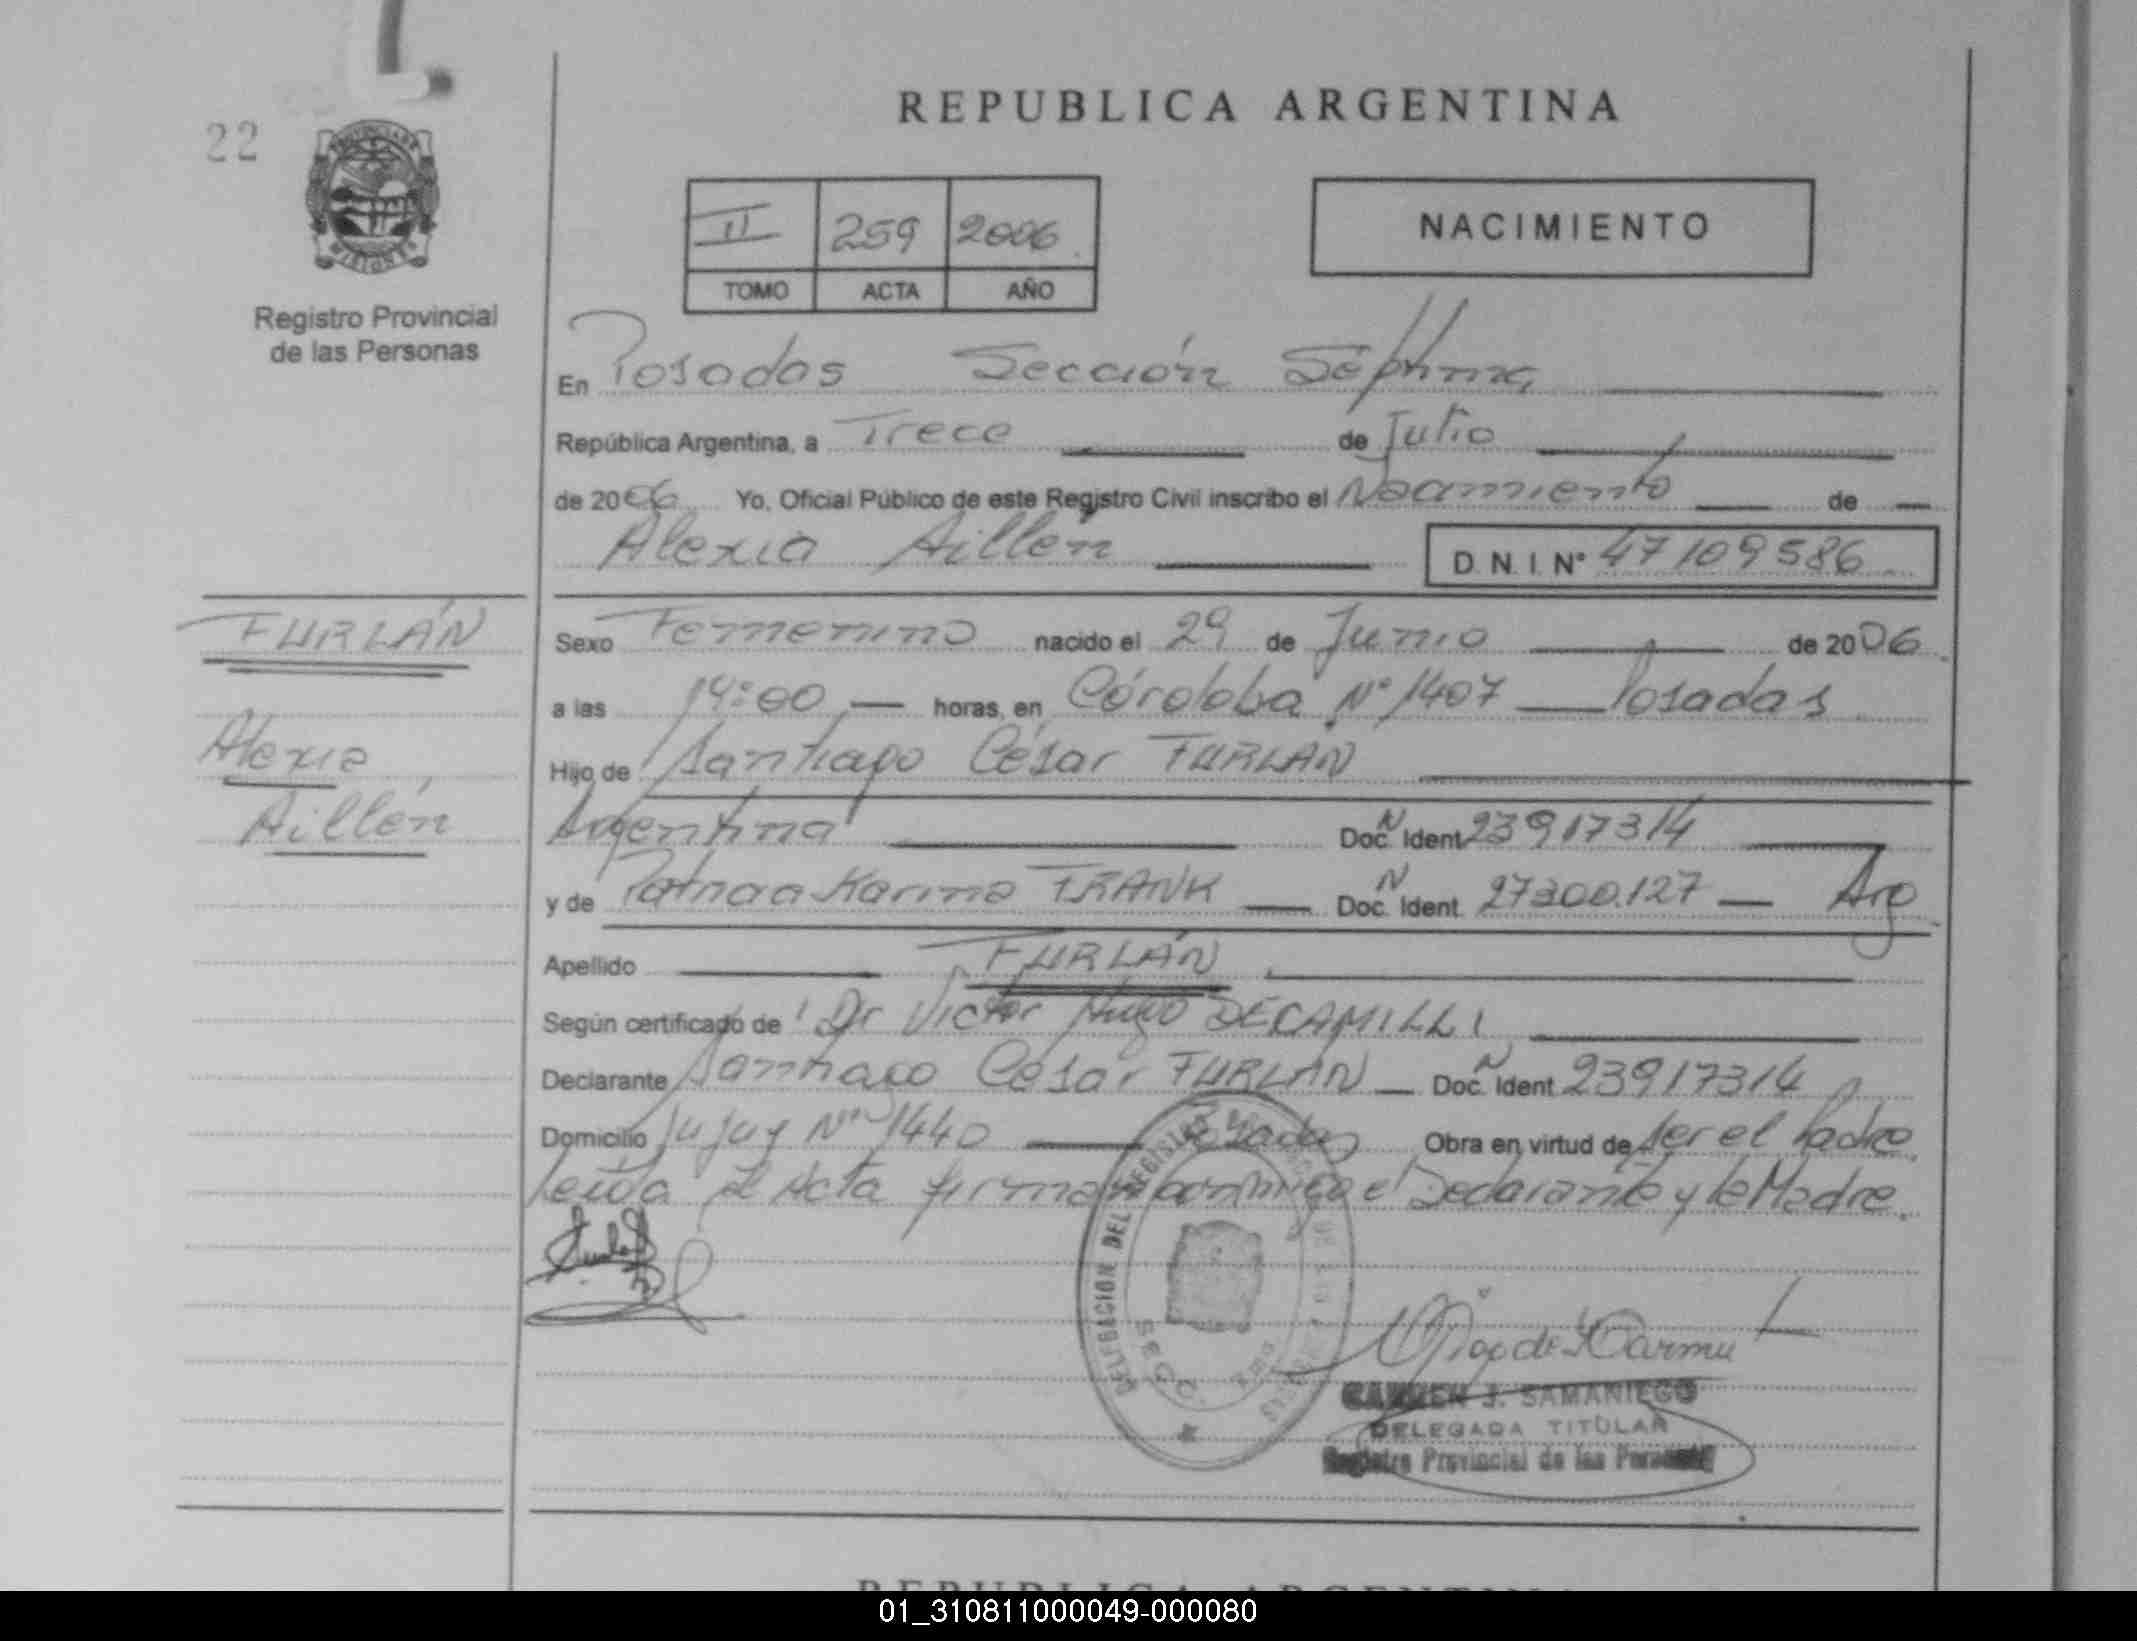 22
REPUBLICA ARGENTINA
II 259 2006
TOMO ACTA AÑO
NACIMIENTO
Registro Provincial
de las Personas
En Posadas Sección Séptima
República Argentina, a Trece de Julio
de 2006 Yo, Oficial Público de este Registro Civil inscribo el Nacimiento de
Alexia Aillén D. N. I. N° 47109586
FURLÁN
Alexia
Aillén
Sexo Femenino nacido el 29 de Junio de 2006
a las 14:00 horas, en Córdoba N° 1407 Posadas
Hijo de Santiago César FURLÁN
Argentina Doc. N Ident 23917314
y de Patricia Karina FRANK Doc. N Ident. 27300.127 Arg
Apellido FURLÁN
Según certificado de Dr Victor Hugo DECAMILLI
Declarante Santiago César FURLÁN Doc. N Ident 23917314
Domicilio Jujuy N° 1440 Posadas Obra en virtud de ser el Padre
Leída el Acta firma conmigo el Declarante y la Madre.
DELEGACION DEL REGISTRO
SECC.
CARMEN J. SAMANIEGO
DELEGADA TITULAR
Registro Provincial de las Personas
REPUBLICA ARGENTINA
01_310811000049-000080